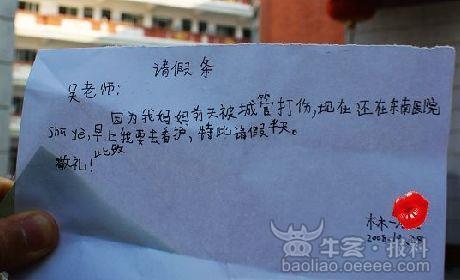 请假条
吴老师:
因为我妈妈前天被城管打伤,现在还在东南医院
shū yè,早上我要去看护,特此请假半天。
此致
敬礼!
林一
2008.10.28
牛客·报料
baoliao.oeeee.com